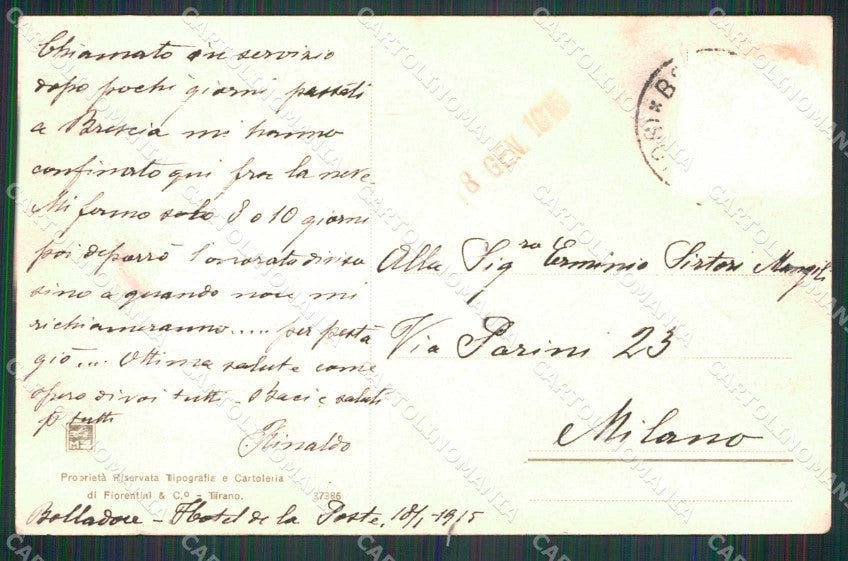 Chiamato in servizio
dopo pochi giorni passati
a Brescia mi hanno
confinato qui fra la neve
Mi fermo solo 8 o 10 giorni
poi deporrò l'onorata divisa
sino a quando non mi
richiameranno.....
gió... Ottima salute come
spero di voi tutti - Baci e saluti
p tutti
Rinaldo
8 GEN. 1915
Alla Sigra Erminio Sirtori
Via Parini 23
Milano
Proprietà Riservata Tipografia e Cartoleria
di Fiorentini & C.o - Tirano.
37386
Bolladore - Hotel de la Poste, 18/1-1915
CARTOLINOMANIA